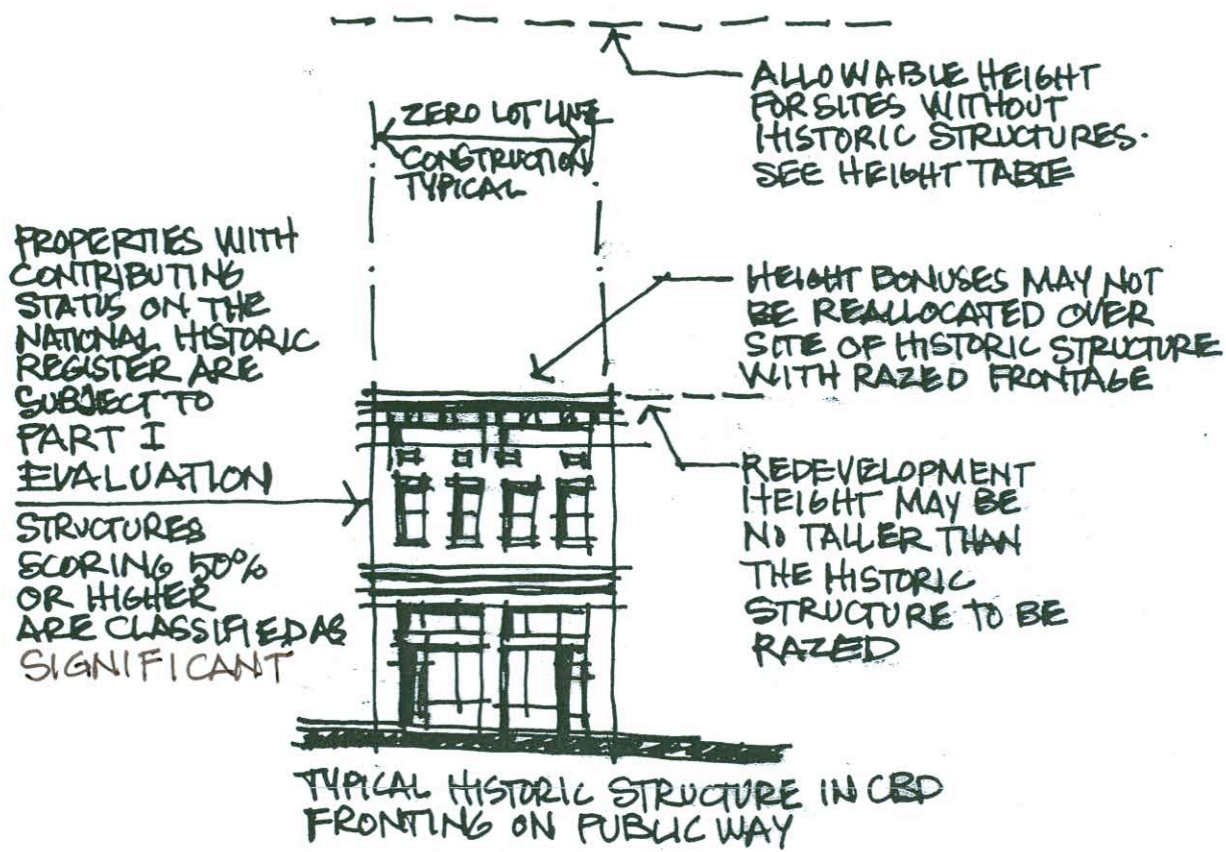 ALLOWABLE HEIGHT
FOR SITES WITHOUT
HISTORIC STRUCTURES.
SEE HEIGHT TABLE
ZERO LOT LINE
CONSTRUCTION
TYPICAL
PROPERTIES WITH
CONTRIBUTING
STATUS ON THE
NATIONAL HISTORIC
REGISTER ARE
SUBJECT TO
PART I
EVALUATION
STRUCTURES
SCORING 50%
OR HIGHER
ARE CLASSIFIED AS
SIGNIFICANT
HEIGHT BONUSES MAY NOT
BE REALLOCATED OVER
SITE OF HISTORIC STRUCTURE
WITH RAZED FRONTAGE
REDEVELOPMENT
HEIGHT MAY BE
NO TALLER THAN
THE HISTORIC
STRUCTURE TO BE
RAZED
TYPICAL HISTORIC STRUCTURE IN CBD
FRONTING ON PUBLIC WAY